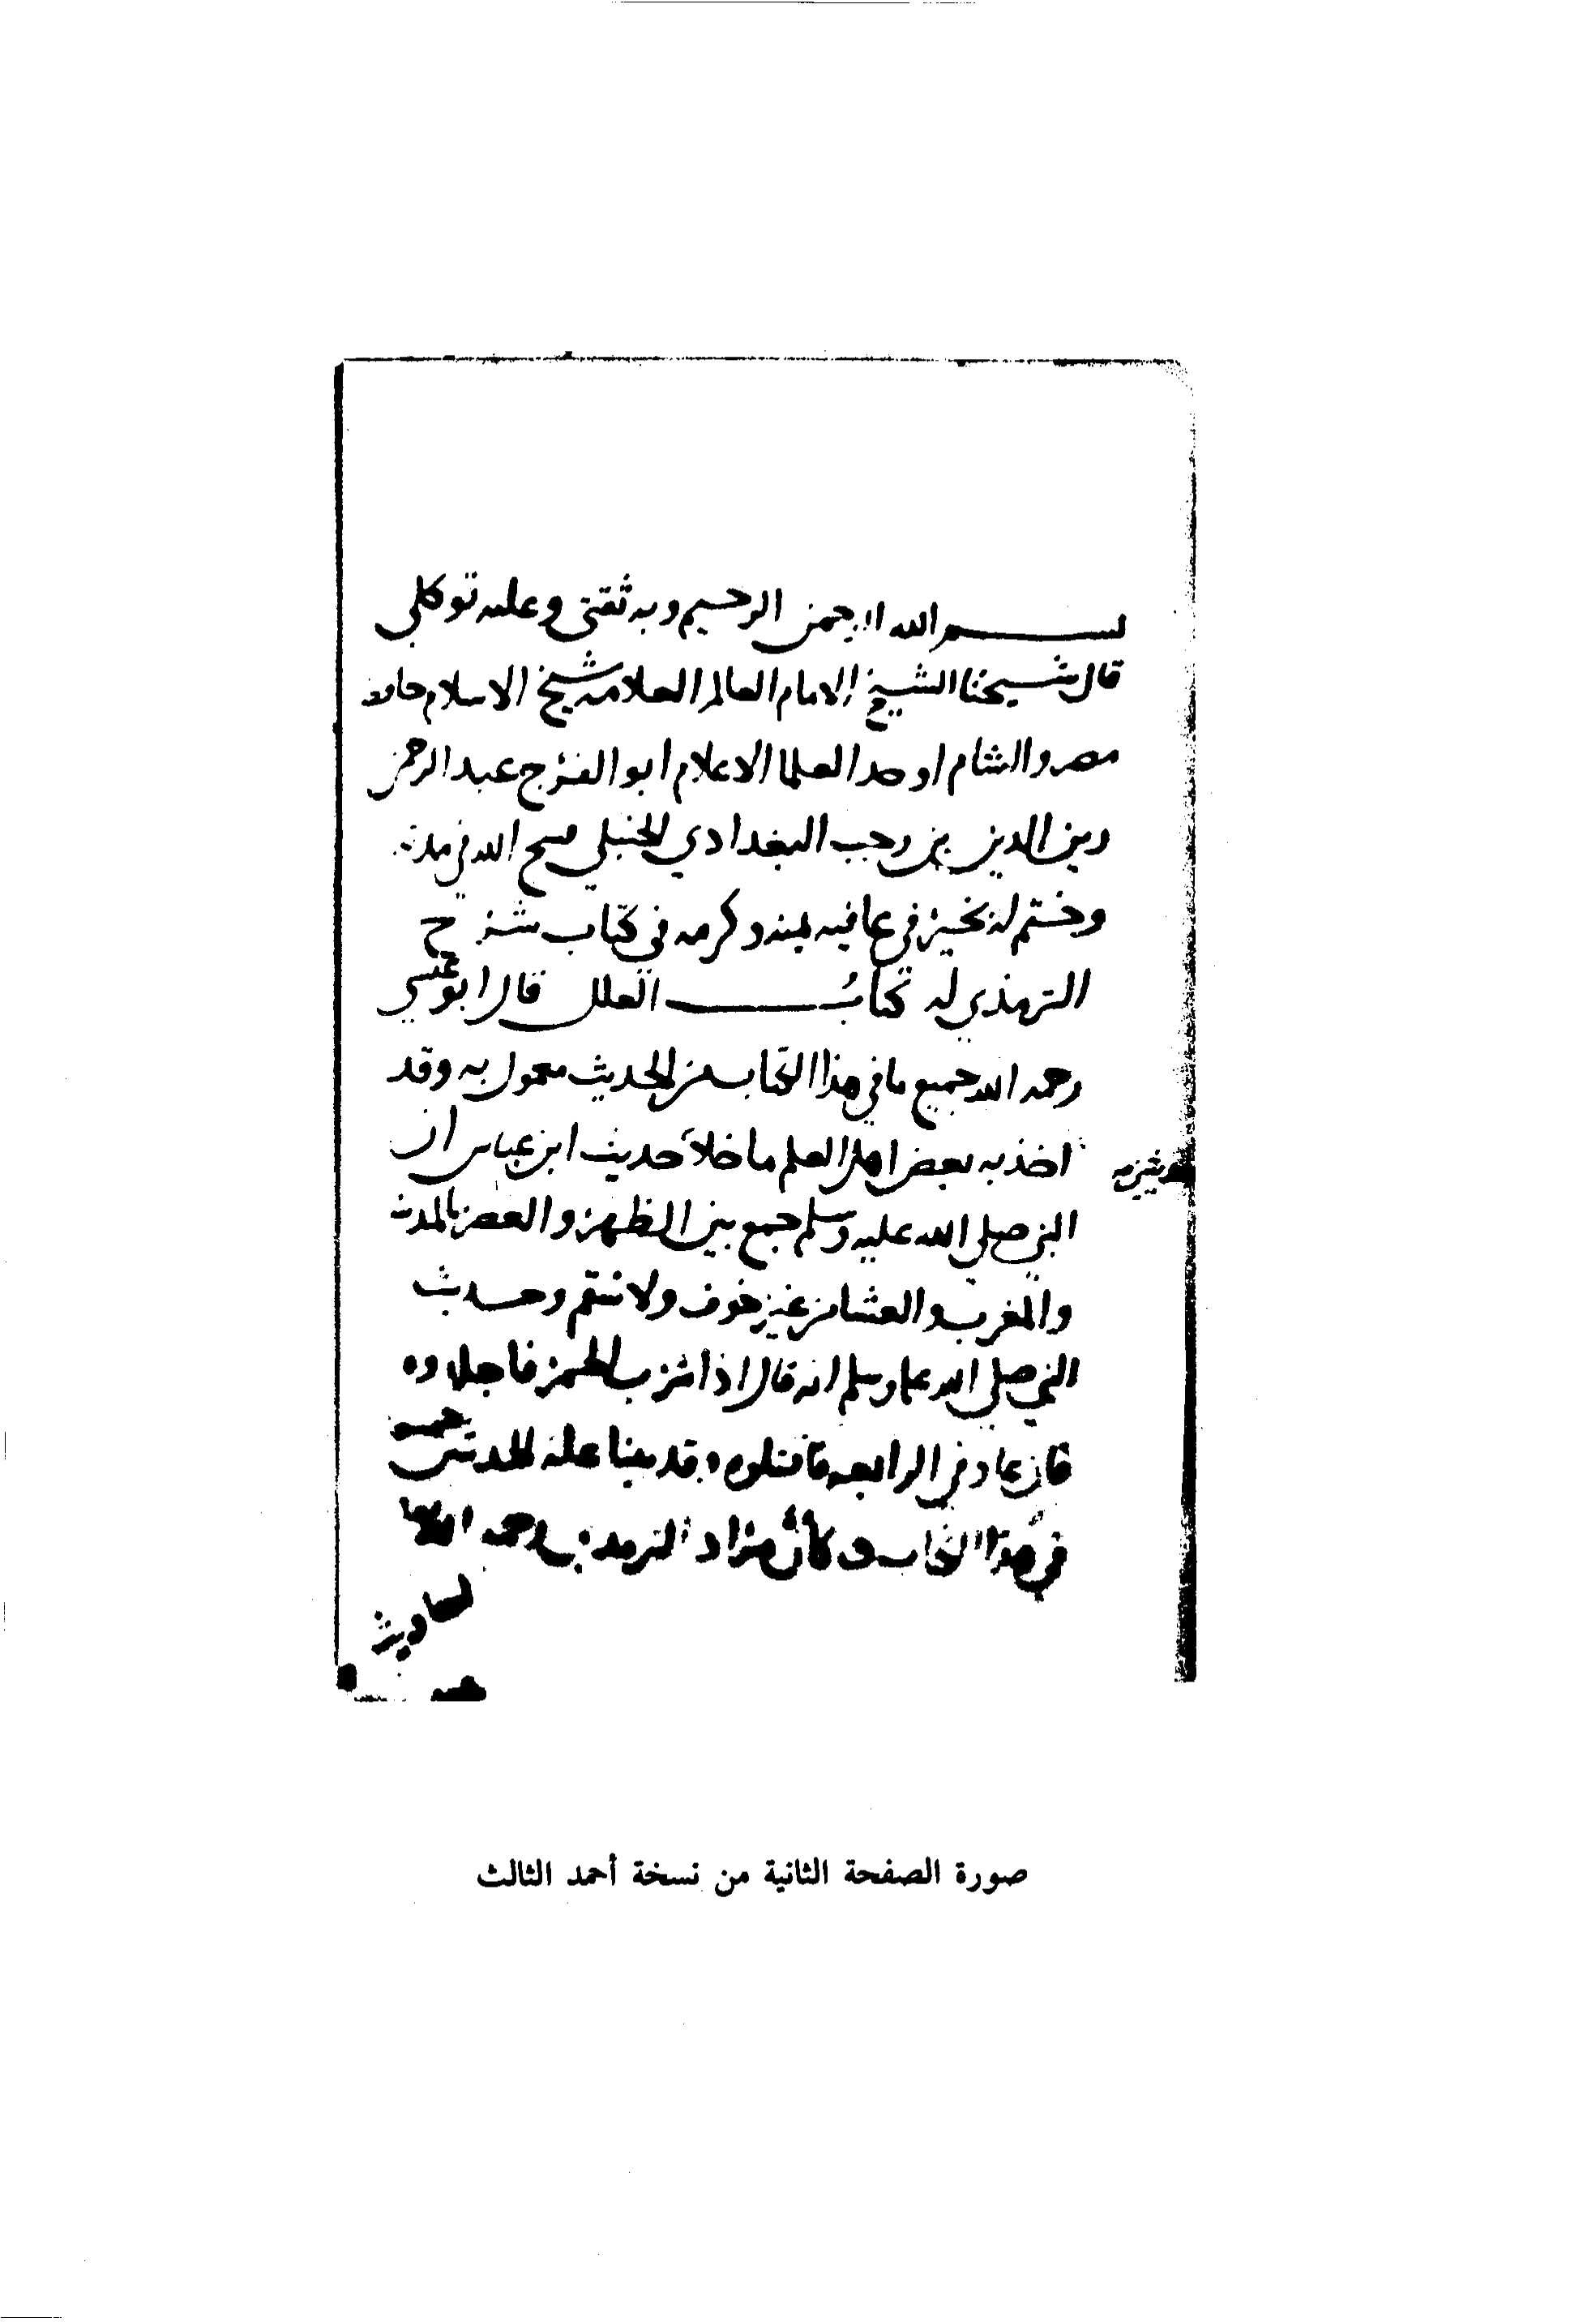 بسم الله الرحمن الرحيم وبه ثقتي وعليه توكلي
قال شيخنا الشيخ الامام العالم العلامه شيخ الاسلام
مصر والشام اوحد العلما الاعلام ابو الفرج عبد الرحمن
زين الدين بن رجب البغدادي الحنبلي فسح الله في مدته
وختم له بخير في عافيه بمنه وكرمه في كتاب شرح
الترمذي له كتاب العلل قال ابو عيسي
رحمه الله جميع ما في هذا الكتاب من الحديث معمول به وقد
اخذ به بعض اهل العلم ما خلا حديث ابن عباس ان
النبي صلى الله عليه وسلم جمع بين الظهر والعصر بالمدينه
والمغرب والعشا من غير خوف ولا سقم وحديث
النبي صلى الله عليه وسلم انه قال اذا شرب الخمر فاجلدوه
فان عاد في الرابعه فاقتلوه وقد بينا عله الحديثين جميعا
في هذا الكتاب وكأن مراد الترمذي رحمه الله
احاديث
صورة الصفحة الثانية من نسخة أحمد الثالث